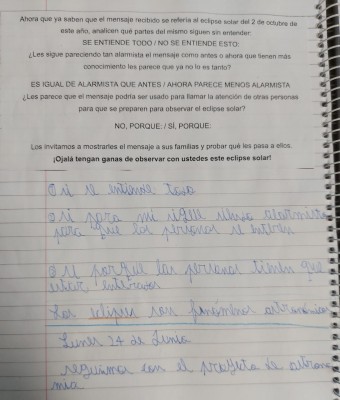 Ahora que ya saben que el mensaje recibido se refería al eclipse solar del 2 de octubre de
este año, analicen qué partes del mismo siguen sin entender:
SE ENTIENDE TODO / NO SE ENTIENDE ESTO:
¿Les sigue pareciendo tan alarmista el mensaje como antes o ahora que tienen más
conocimiento les parece que ya no lo es tanto?
ES IGUAL DE ALARMISTA QUE ANTES / AHORA PARECE MENOS ALARMISTA
¿Les parece que el mensaje podría ser usado para llamar la atención de otras personas
para que se preparen para observar el eclipse solar?
NO, PORQUE: / SÍ, PORQUE:
Los invitamos a mostrarles el mensaje a sus familias y probar qué les pasa a ellos.
¡Ojalá tengan ganas de observar con ustedes este eclipse solar!
si se entiende todo
si para mi sigue siendo alarmista
para que las personas se enteren
si porque las personas tienen que
estar enterados
Los eclipses son fenómenos astronómicos
Lunes 24 de Junio
seguimos con el proyecto de astrono
mia